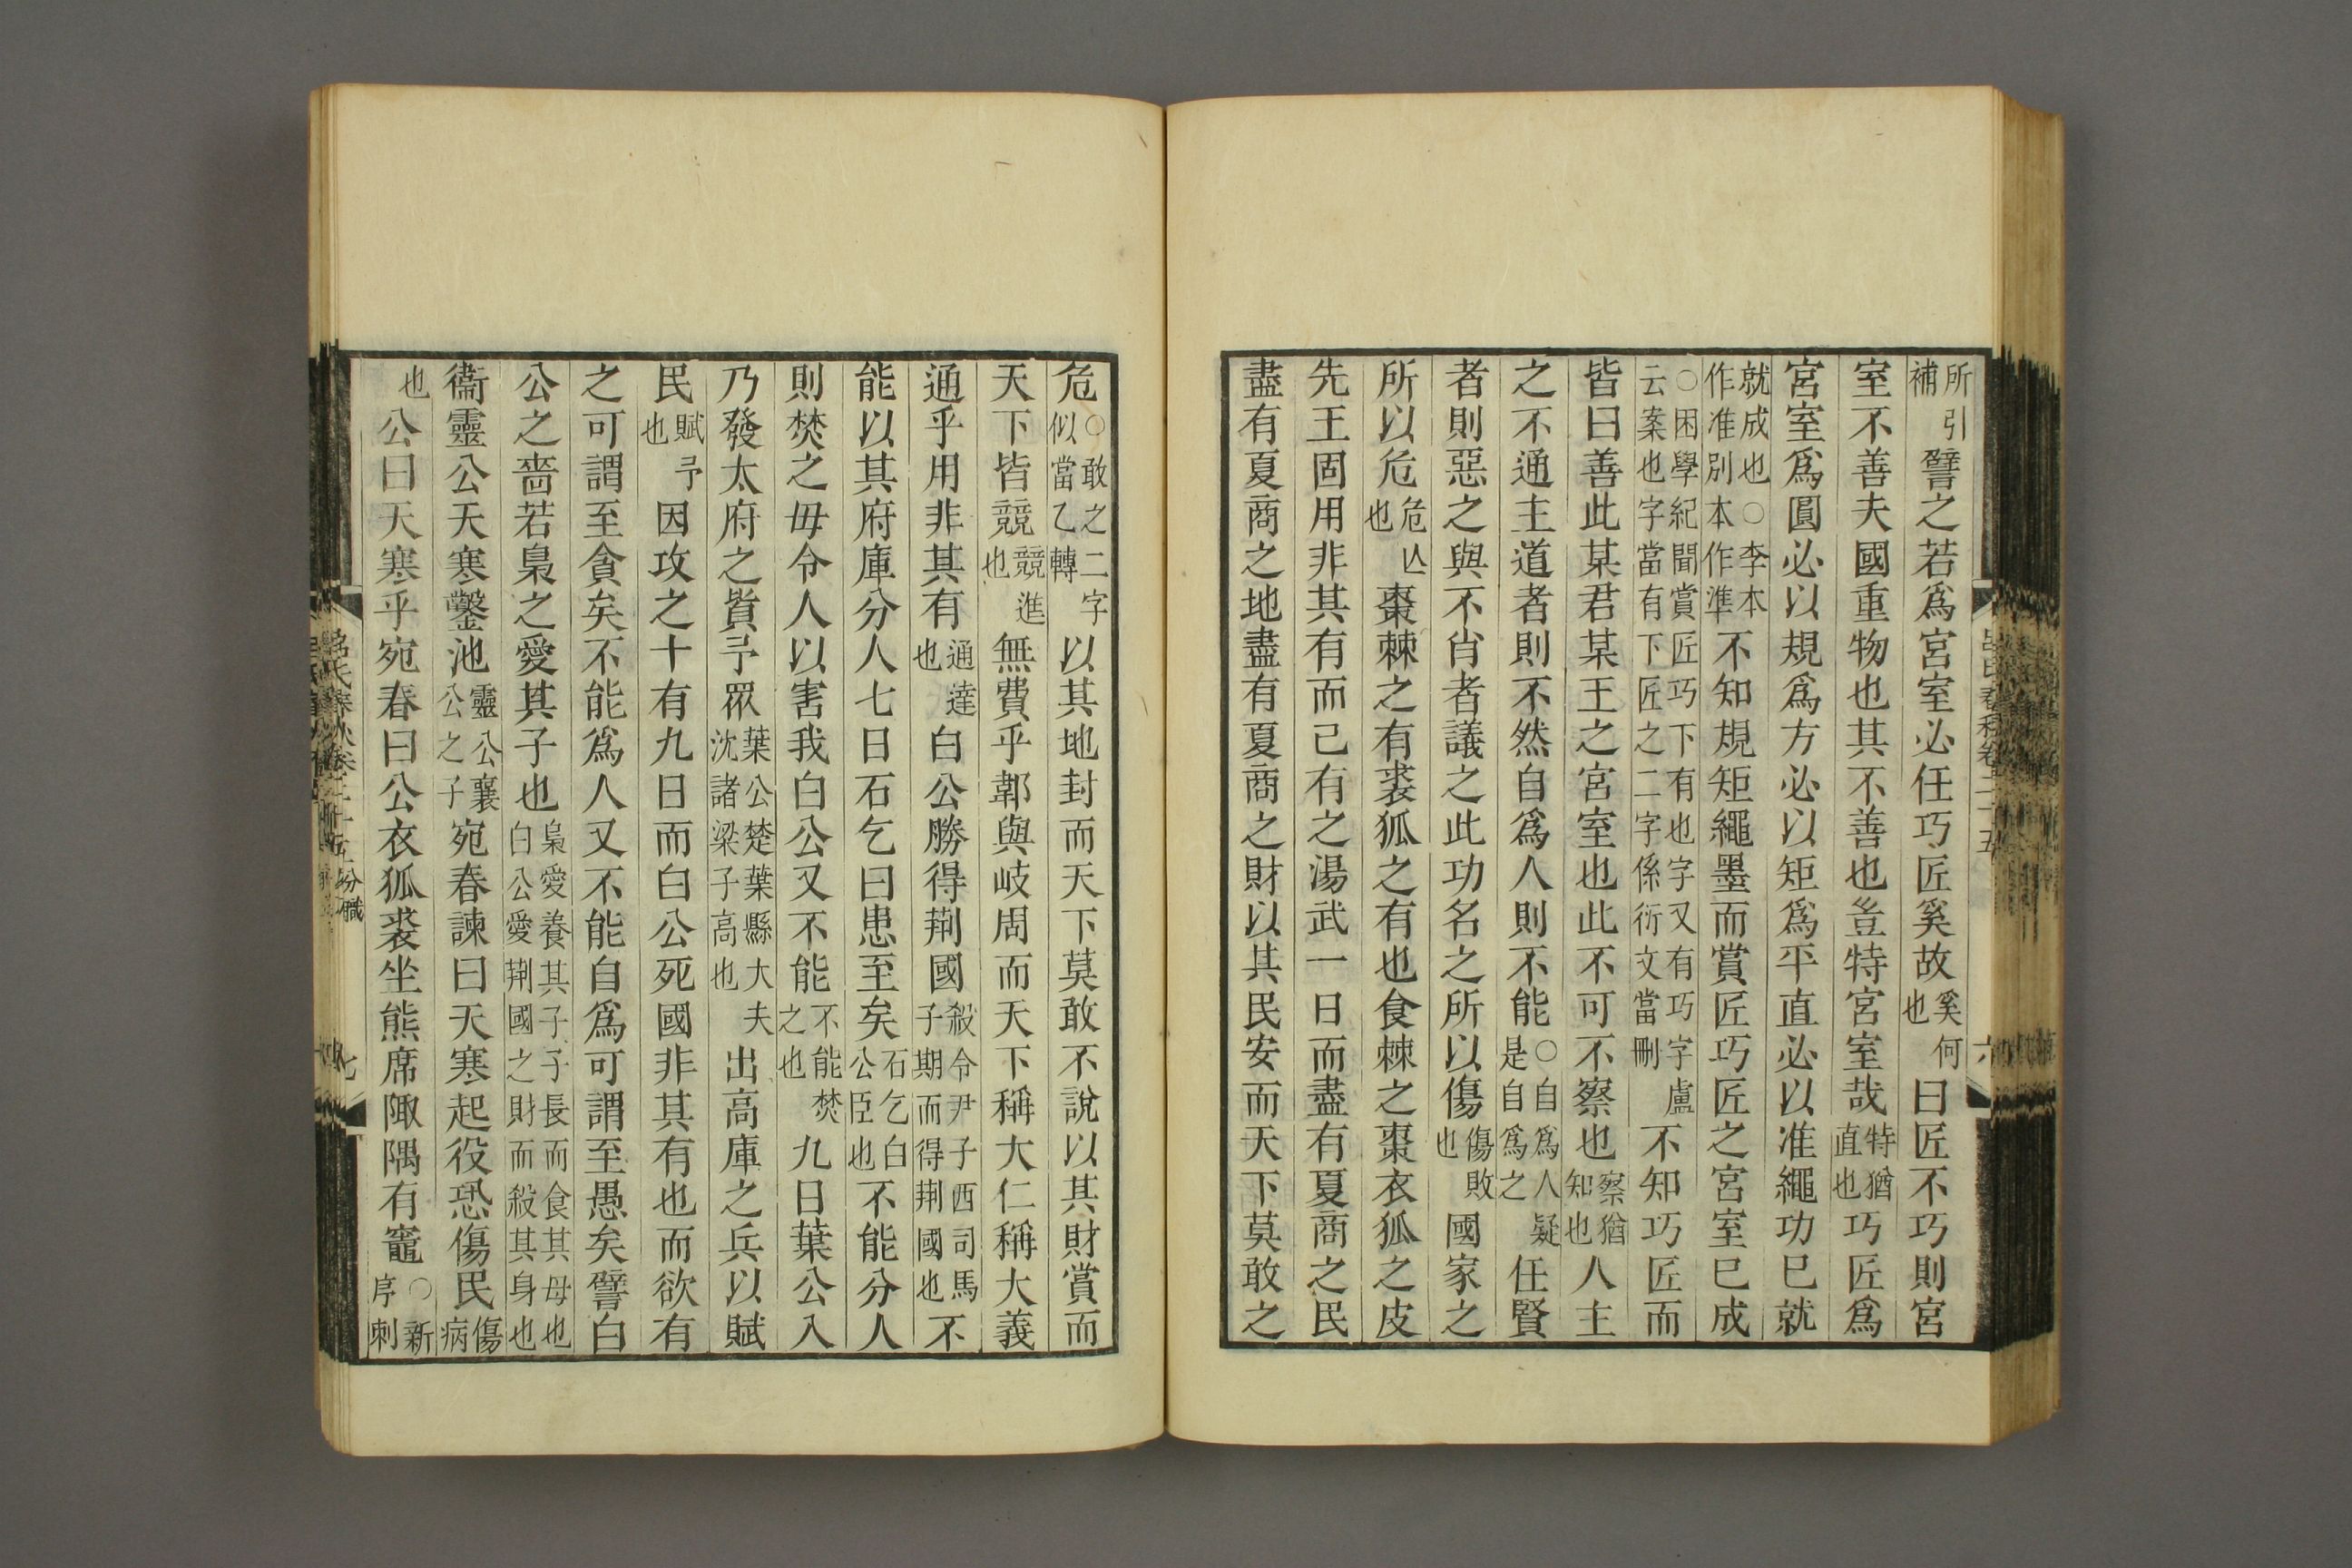 所引補譬之若爲宮室必任巧匠奚故奚何也曰匠不巧則宮
室不善夫國重物也其不善也豈特宮室哉特猶直也巧匠爲
宮室爲圓必以規爲方必以矩爲平直必以准繩功已就
就成也○李本作准別本作準不知規矩繩墨而賞匠巧匠之宮室已成
○困學紀聞賞匠巧下有也字又有巧字盧云案也字當有下匠之二字係衍文當刪不知巧匠而
皆曰善此某君某王之宮室也此不可不察也察猶知也人主
之不通主道者則不然自爲人則不能○自爲人疑是自爲之任賢
者則惡之與不肖者議之此功名之所以傷傷敗也國家之
所以危危亾也棗棘之有裘狐之有也食棘之棗衣狐之皮
先王固用非其有而己有之湯武一日而盡有夏商之民
盡有夏商之地盡有夏商之財以其民安而天下莫敢之
呂氏春秋卷二十五
六
危○敢之二字似當乙轉以其地封而天下莫敢不說以其財賞而
天下皆競競進也無費乎鄣與岐周而天下稱大仁稱大義
通乎用非其有通達也白公勝得荆國殺令尹子西司馬子期而得荆國也不
能以其府庫分人七日石乞曰患至矣石乞白公臣也不能分人
則焚之毋令人以害我白公又不能不能焚之也九日葉公入
乃發太府之貨予眾葉公楚葉縣大夫沈諸梁子高也出高庫之兵以賦
民賦予也因攻之十有九日而白公死國非其有也而欲有
之可謂至貪矣不能爲人又不能自爲可謂至愚矣譬白
公之嗇若梟之愛其子也梟愛養其子子長而食其母也白公愛荆國之財而殺其身也
衞靈公天寒鑿池靈公襄公之子宛春諫曰天寒起役恐傷民傷病
也公曰天寒乎宛春曰公衣狐裘坐熊席陬隅有竈○新序刺
呂氏春秋卷二十五分職
七